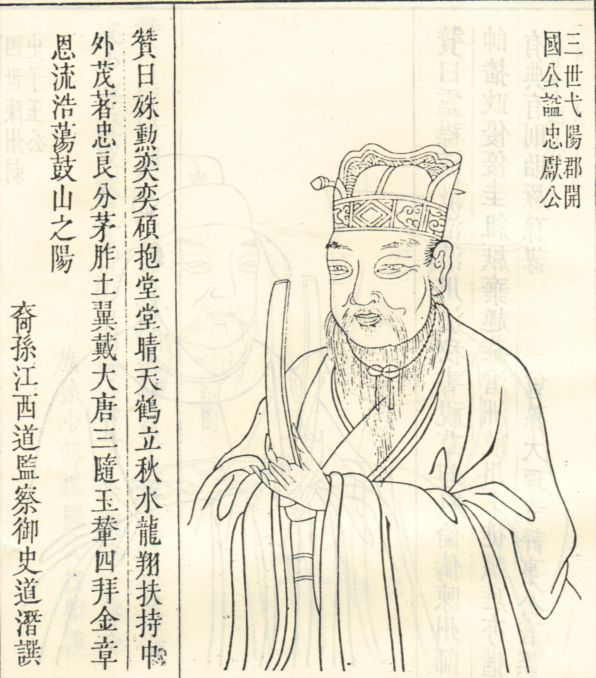 三世弋陽郡開
國公謚忠獻公
贊曰殊勳奕奕碩抱堂堂晴天鶴立秋水龍翔扶持中
外茂著忠良分茅胙土翼戴大唐三隨玉輦四拜金章
恩流浩蕩鼓山之陽
裔孫江西道監察御史道潛譔